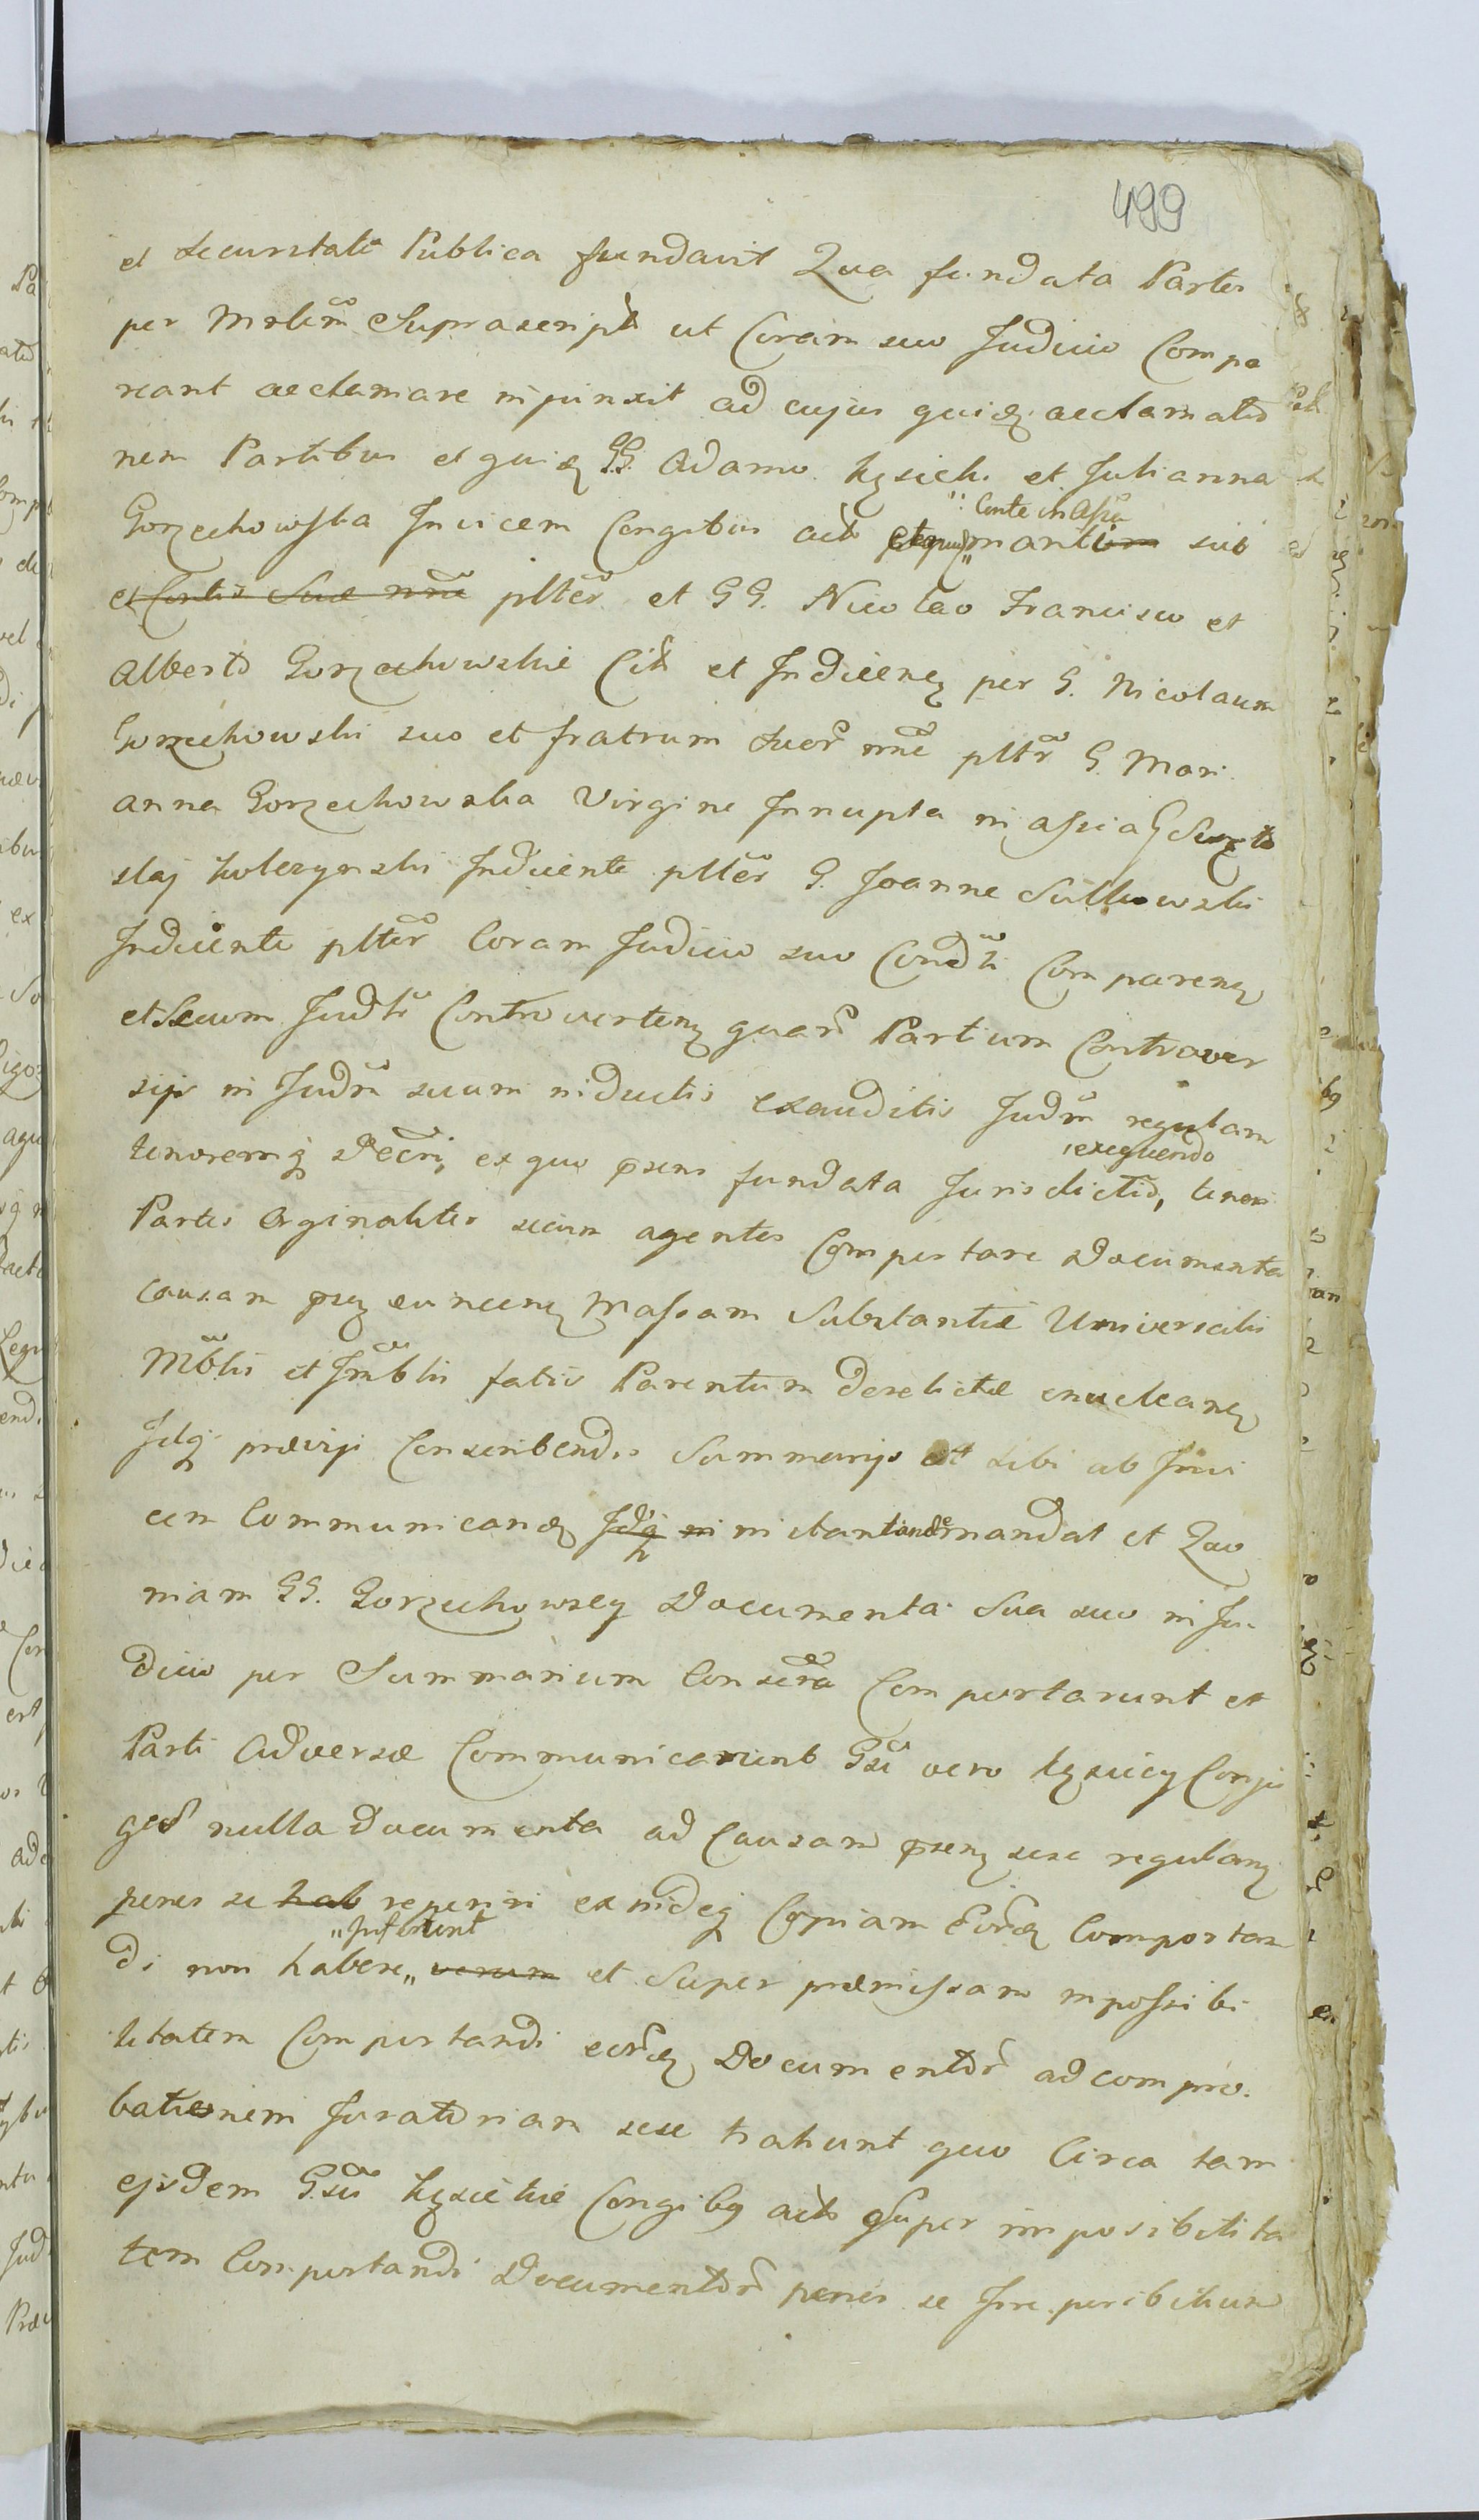 499
et securitate Publica fundavit Qua fundata Partes
per Mrlem Suprascript ut Coram suo Judicio Compa
reant acclamare injunxit ad cujus quidẽ acclamatio
nem Partibus et quidẽ GG. Adamo Łysick. et Julianna
Gorzechowska Invicem Congibus act
Conte in Assa
maritim sui
et Contis Suæ nne plter et GG. Nicolao Francisco et
Alberto Gorzechowskie Cit et Indicenẽ per G. Nicolaum
Gorzechowski suo et fratrum suor nne pltr G. Mari
anna Gorzechowska Virgine Innupta in assia G
slaj Indicente plter G. Joanne Sulkowski
Indicente plter Coram Judicio suo Condti Comparenẽ
et Secum Judtr Controvertenẽ quar Partium Controver
sijs in Judm suum inductis exauditis Judm regulam
exequendo
tenoremq Decri, ex quo psens fundata Jurisdictio, tenori
Partes Orginaliter secum agentes Comportare Documenta
causam psẽ euncenẽ Massam Substantiæ Universalis
Mblis et Imblis fatis Parentum derelictæ enucleanẽ
Idq prævijs Conscribendis Summarijs et sibi ab Invi
cem Communicandẽ Idq in in stanti mandat et Quo
niam GG. Gorzechowscy Documenta Sua suo in Ju-
dicio per Summarium Conscra Comportarunt et
Parti Adversæ Communicarunt Gsi vero Łysiccy Conju
ges nulla Documenta ad Causam psenẽ sese regulanẽ
penes se hab reperiri ex indeq Copiam eordẽ Comportan
" Inferunt
di non habere " verum et Super præmissam impossibi
litatem Comportandi eordẽ Documentor ad compro-
bationem Juratoriam sese trahunt quo Circa tam
ejsdem Gsu Łysickie Congibq act Super imposibilita
tem Comportandi Documentor penes se Irreperibilium